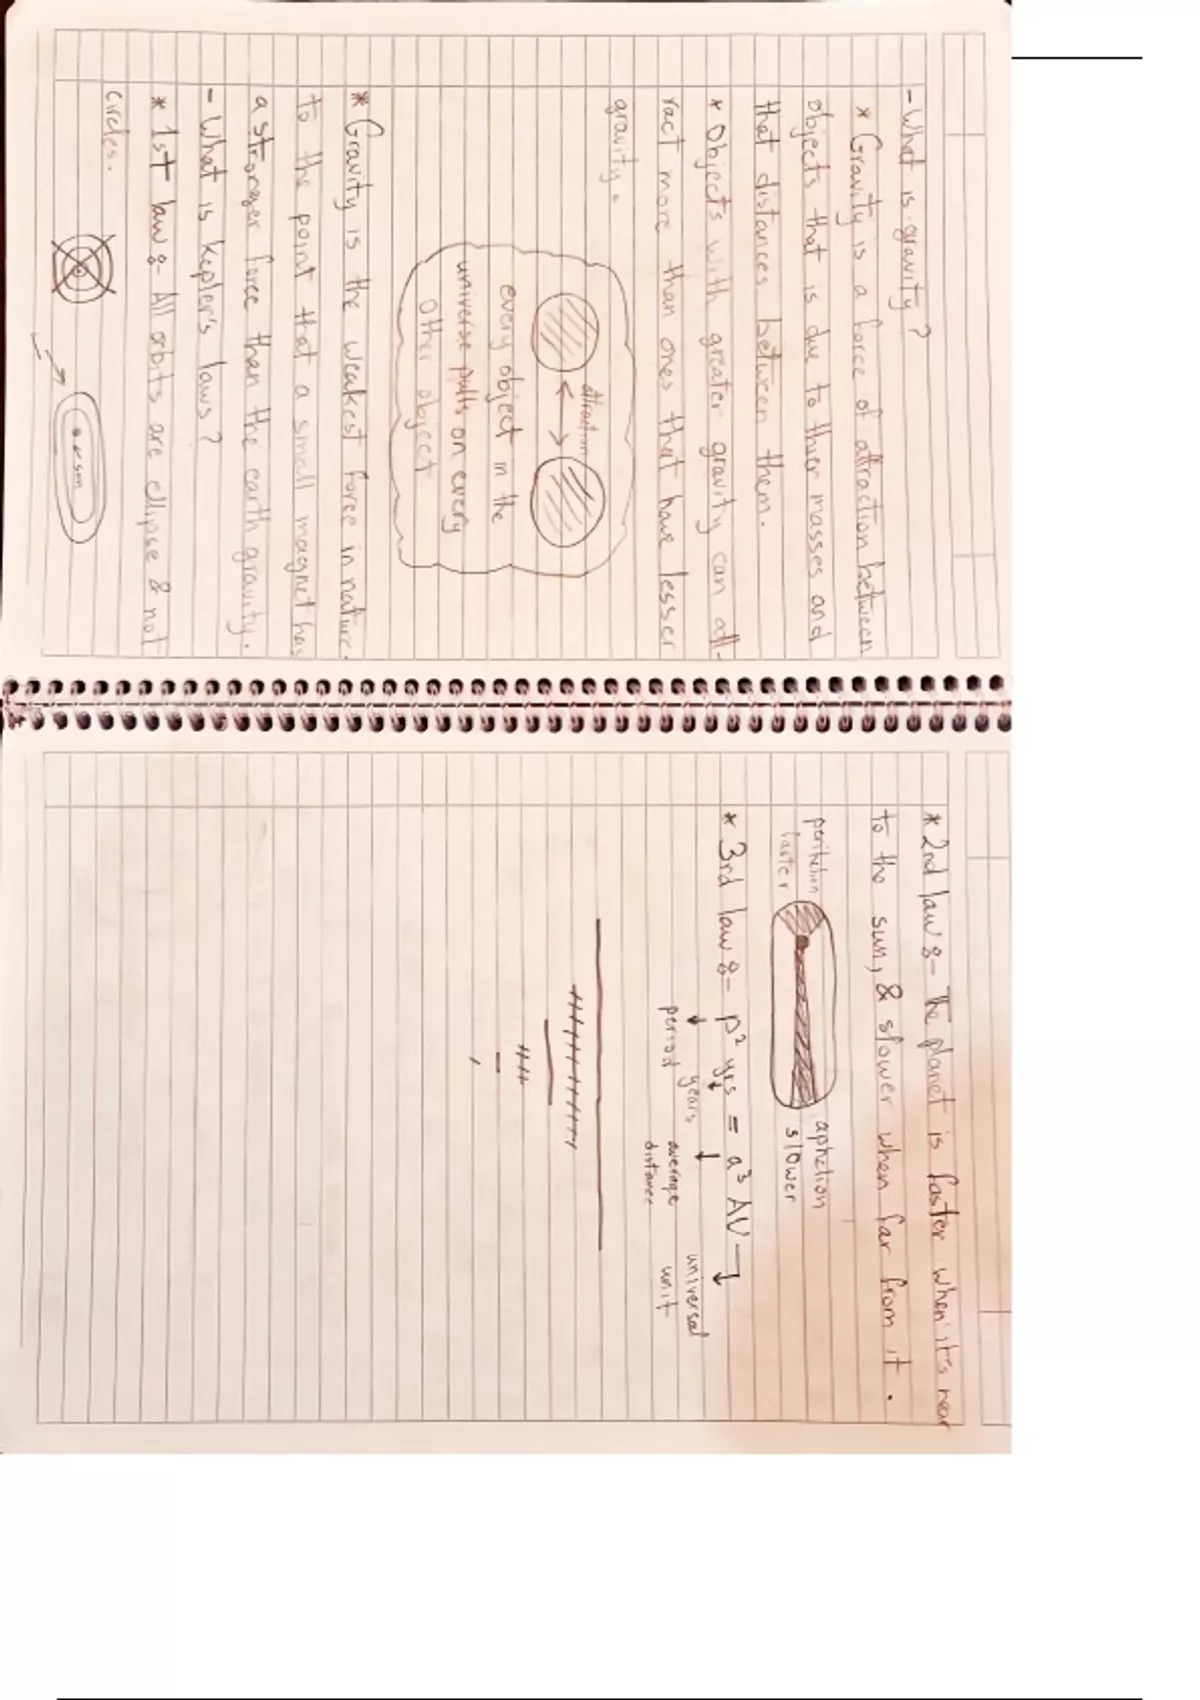 - What is gravity?
* Gravity is a force of attraction between
objects that is due to thier masses and
that distances between them.
* Objects with greater gravity can att-
ract more than ones that have lesser
gravity.
attraction
every object in the
universe pulls on every
other object
* Gravity is the weakest force in nature.
to the point that a small magnet has
a stronger force than the earth gravity.
- What is Kepler's laws?
* 1st law :- All orbits are ellipse & not
circles.
sun
* 2nd law :- The planet is faster when it's near
to the sun, & slower when far from it.
perihelion
faster
aphelion
slower
* 3rd law :- p² yrs = a³ AU
period
years
average
distance
universal
unit